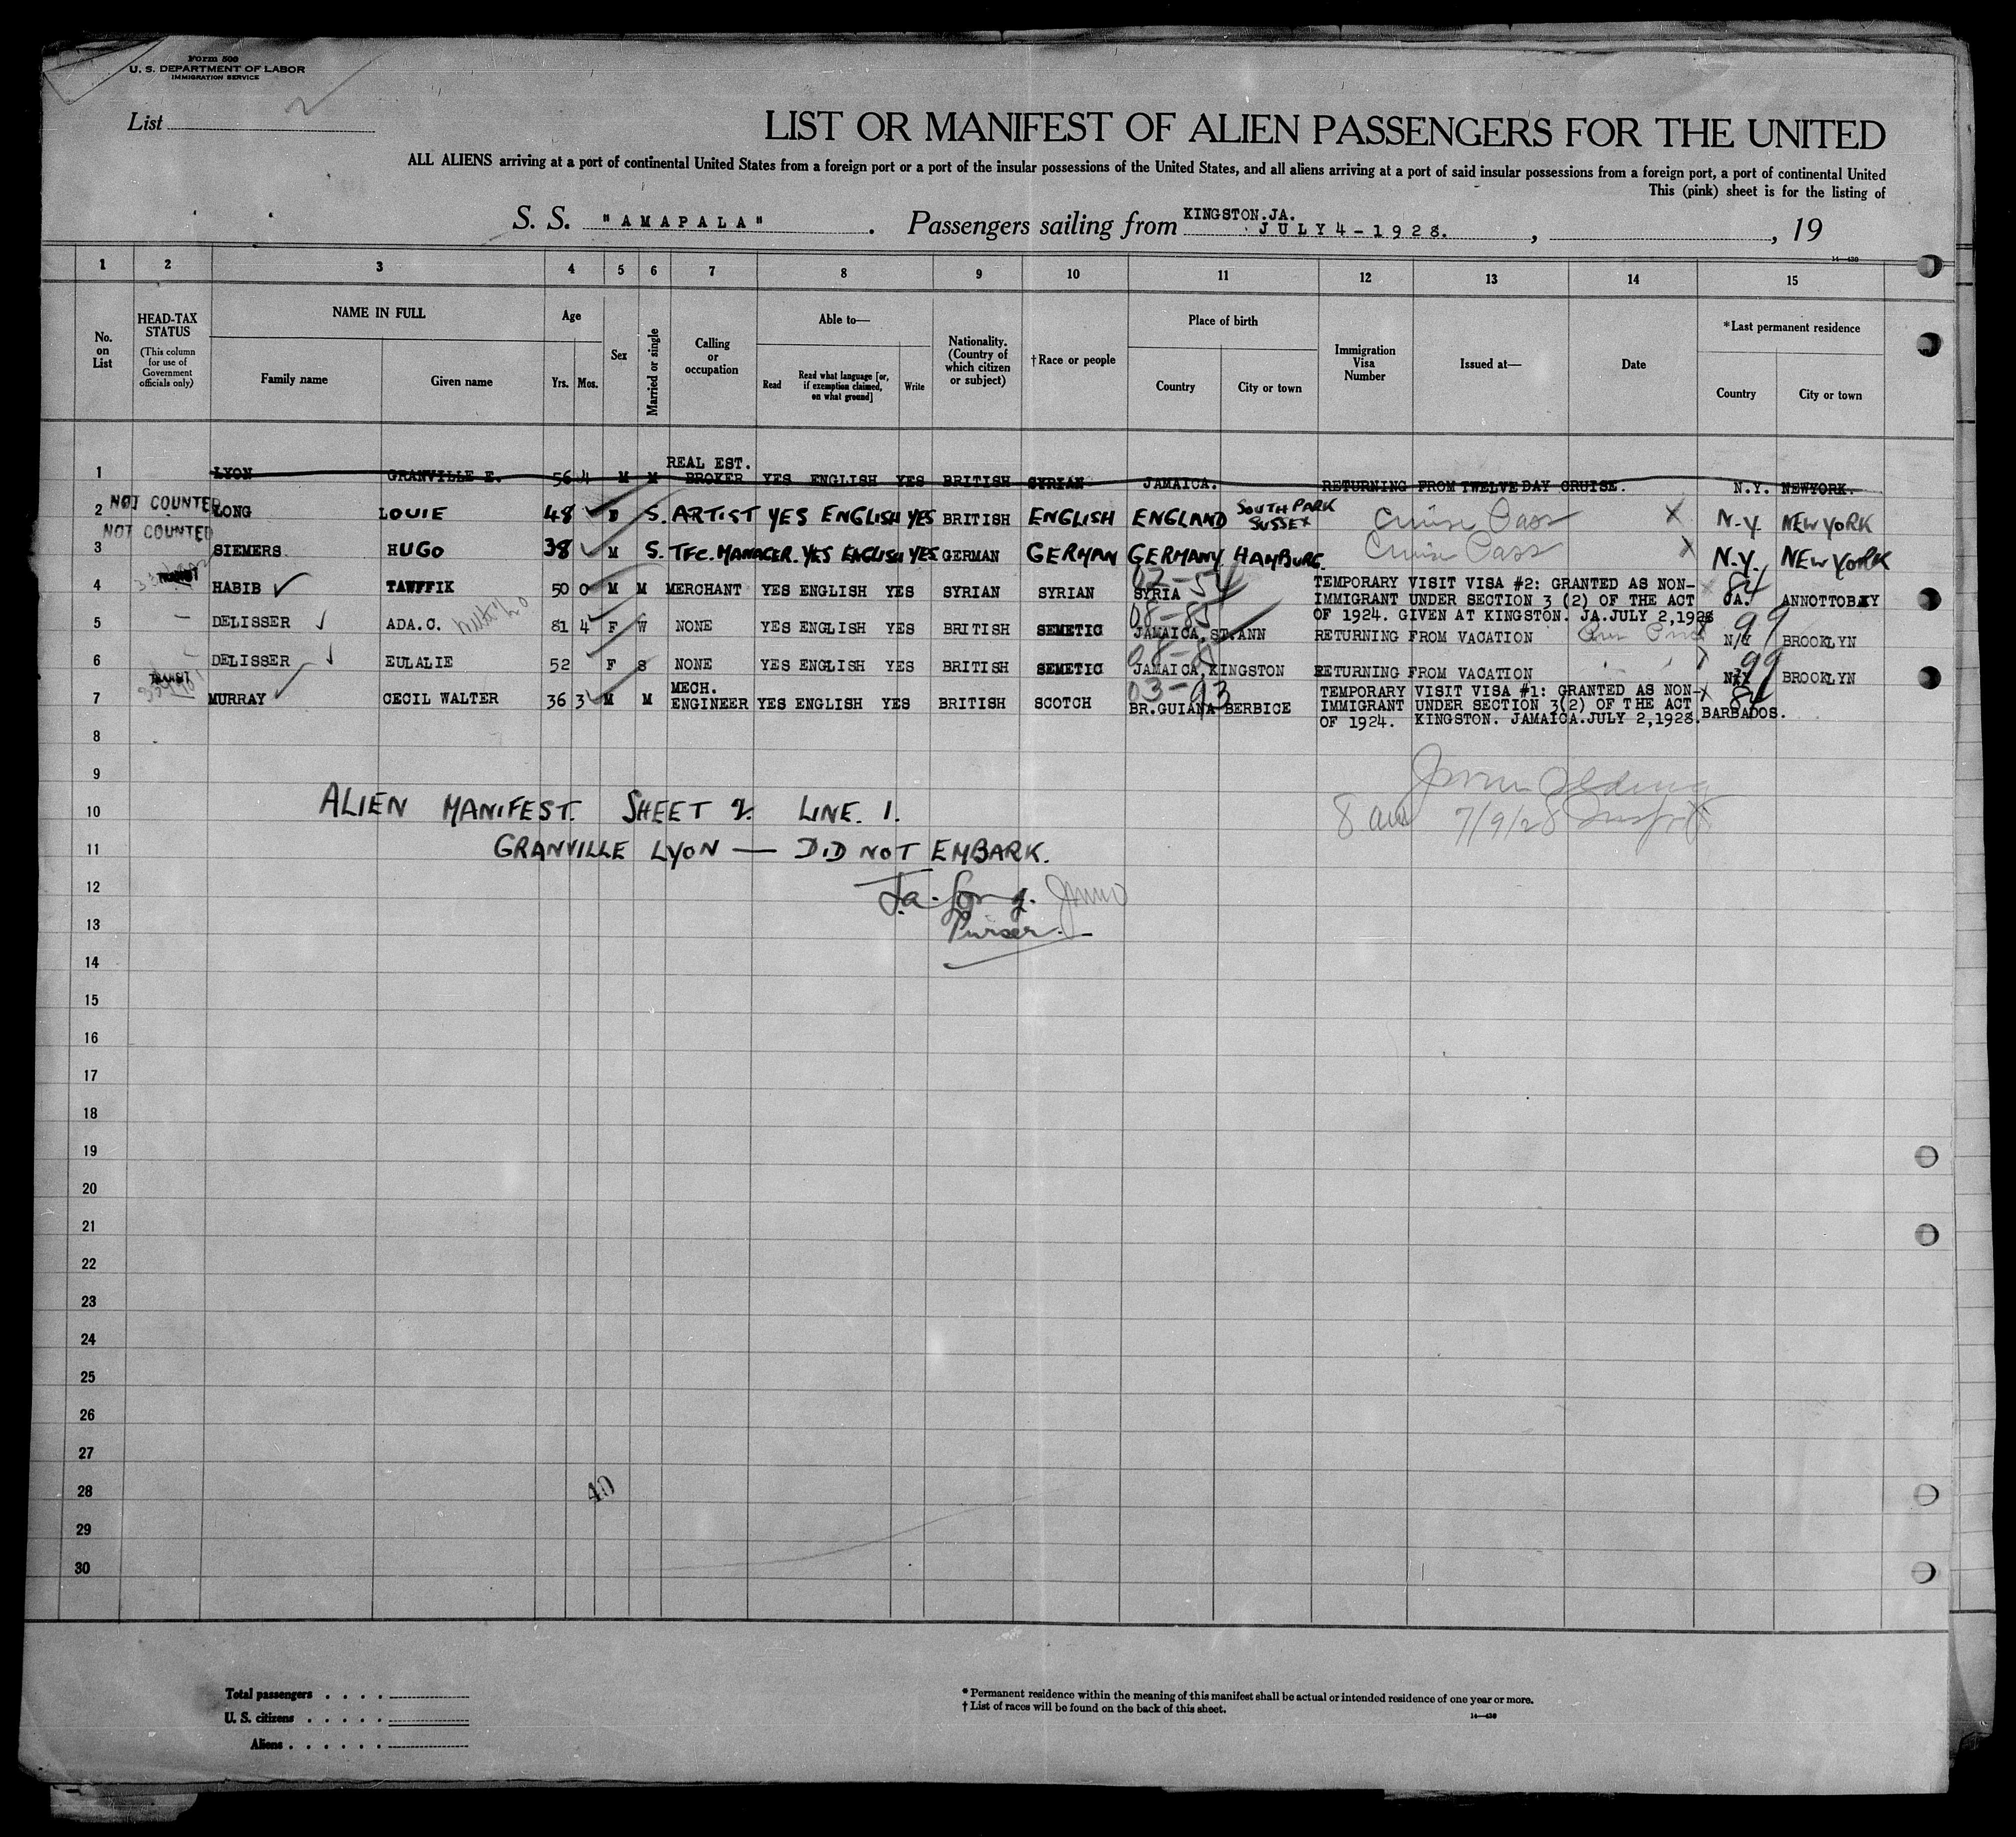 Form 500
U. S. DEPARTMENT OF LABOR
IMMIGRATION SERVICE
List
LIST OR MANIFEST OF ALIEN PASSENGERS FOR THE UNITED
ALL ALIENS arriving at a port of continental United States from a foreign port or a port of the insular possessions of the United States, and all aliens arriving at a port of said insular possessions from a foreign port, a port of continental United
This (pink) sheet is for the listing of
S. S. "AMAPALA". Passengers sailing from KINGSTON.JA. JULY 4-1928. , , 19
14—430
1 2 3 4 5 6 7 8 9 10 11 12 13 14 15
No. on List
HEAD-TAX STATUS
(This column for use of Government officials only)
NAME IN FULL
Family name
Given name
Age
Yrs. Mos.
Sex
Married or single
Calling or occupation
Able to—
Read
Read what language [or, if exemption claimed, on what ground]
Write
Nationality. (Country of which citizen or subject)
†Race or people
Place of birth
Country
City or town
Immigration Visa Number
Issued at—
Date
*Last permanent residence
Country
City or town
1 LYON GRANVILLE E. 56 4 M M REAL EST. BROKER YES ENGLISH YES BRITISH SYRIAN JAMAICA. RETURNING FROM TWELVE DAY CRUISE. N.Y. NEWYORK.
NOT COUNTED
2 LONG LOUIE 48 S. ARTIST YES ENGLISH YES BRITISH ENGLISH ENGLAND SOUTH PARK SUSSEX Cruise Pass X N.Y. NEW YORK
NOT COUNTED
3 SIEMERS HUGO 38 M S. TFC. MANAGER. YES ENGLISH YES GERMAN GERMAN GERMANY HAMBURG. Cruise Pass X N.Y. NEW YORK
TRANSIT
4 HABIB TAWFFIK 50 0 M M MERCHANT YES ENGLISH YES SYRIAN SYRIAN SYRIA TEMPORARY VISIT VISA #2: GRANTED AS NON-IMMIGRANT UNDER SECTION 3 (2) OF THE ACT OF 1924. GIVEN AT KINGSTON. JA.JULY 2,1928 84 JA. ANNOTTOBAY
5 DELISSER ADA.C. 81 4 F W NONE YES ENGLISH YES BRITISH SEMETIC 08-85 JAMAICA, ST.ANN RETURNING FROM VACATION 99 N/Y BROOKLYN
6 DELISSER EULALIE 52 F S NONE YES ENGLISH YES BRITISH SEMETIC JAMAICA, KINGSTON RETURNING FROM VACATION 99 BROOKLYN
TRANSIT
7 MURRAY CECIL WALTER 36 3 M M MECH. ENGINEER YES ENGLISH YES BRITISH SCOTCH 03-93 BR.GUIANA BERBICE TEMPORARY VISIT VISA #1: GRANTED AS NON-IMMIGRANT UNDER SECTION 3(2) OF THE ACT OF 1924. KINGSTON. JAMAICA.JULY 2,1928. 84 BARBADOS.
8
9
10 ALIEN MANIFEST. SHEET 2. LINE. 1.
8 am 7/9/28
11 GRANVILLE LYON — DID NOT EMBARK.
12
13 Purser.
14
15
16
17
18
19
20
21
22
23
24
25
26
27
28 40
29
30
Total passengers . . . .
U. S. citizens . . . . .
Aliens . . . . . .
* Permanent residence within the meaning of this manifest shall be actual or intended residence of one year or more.
† List of races will be found on the back of this sheet.
14—430